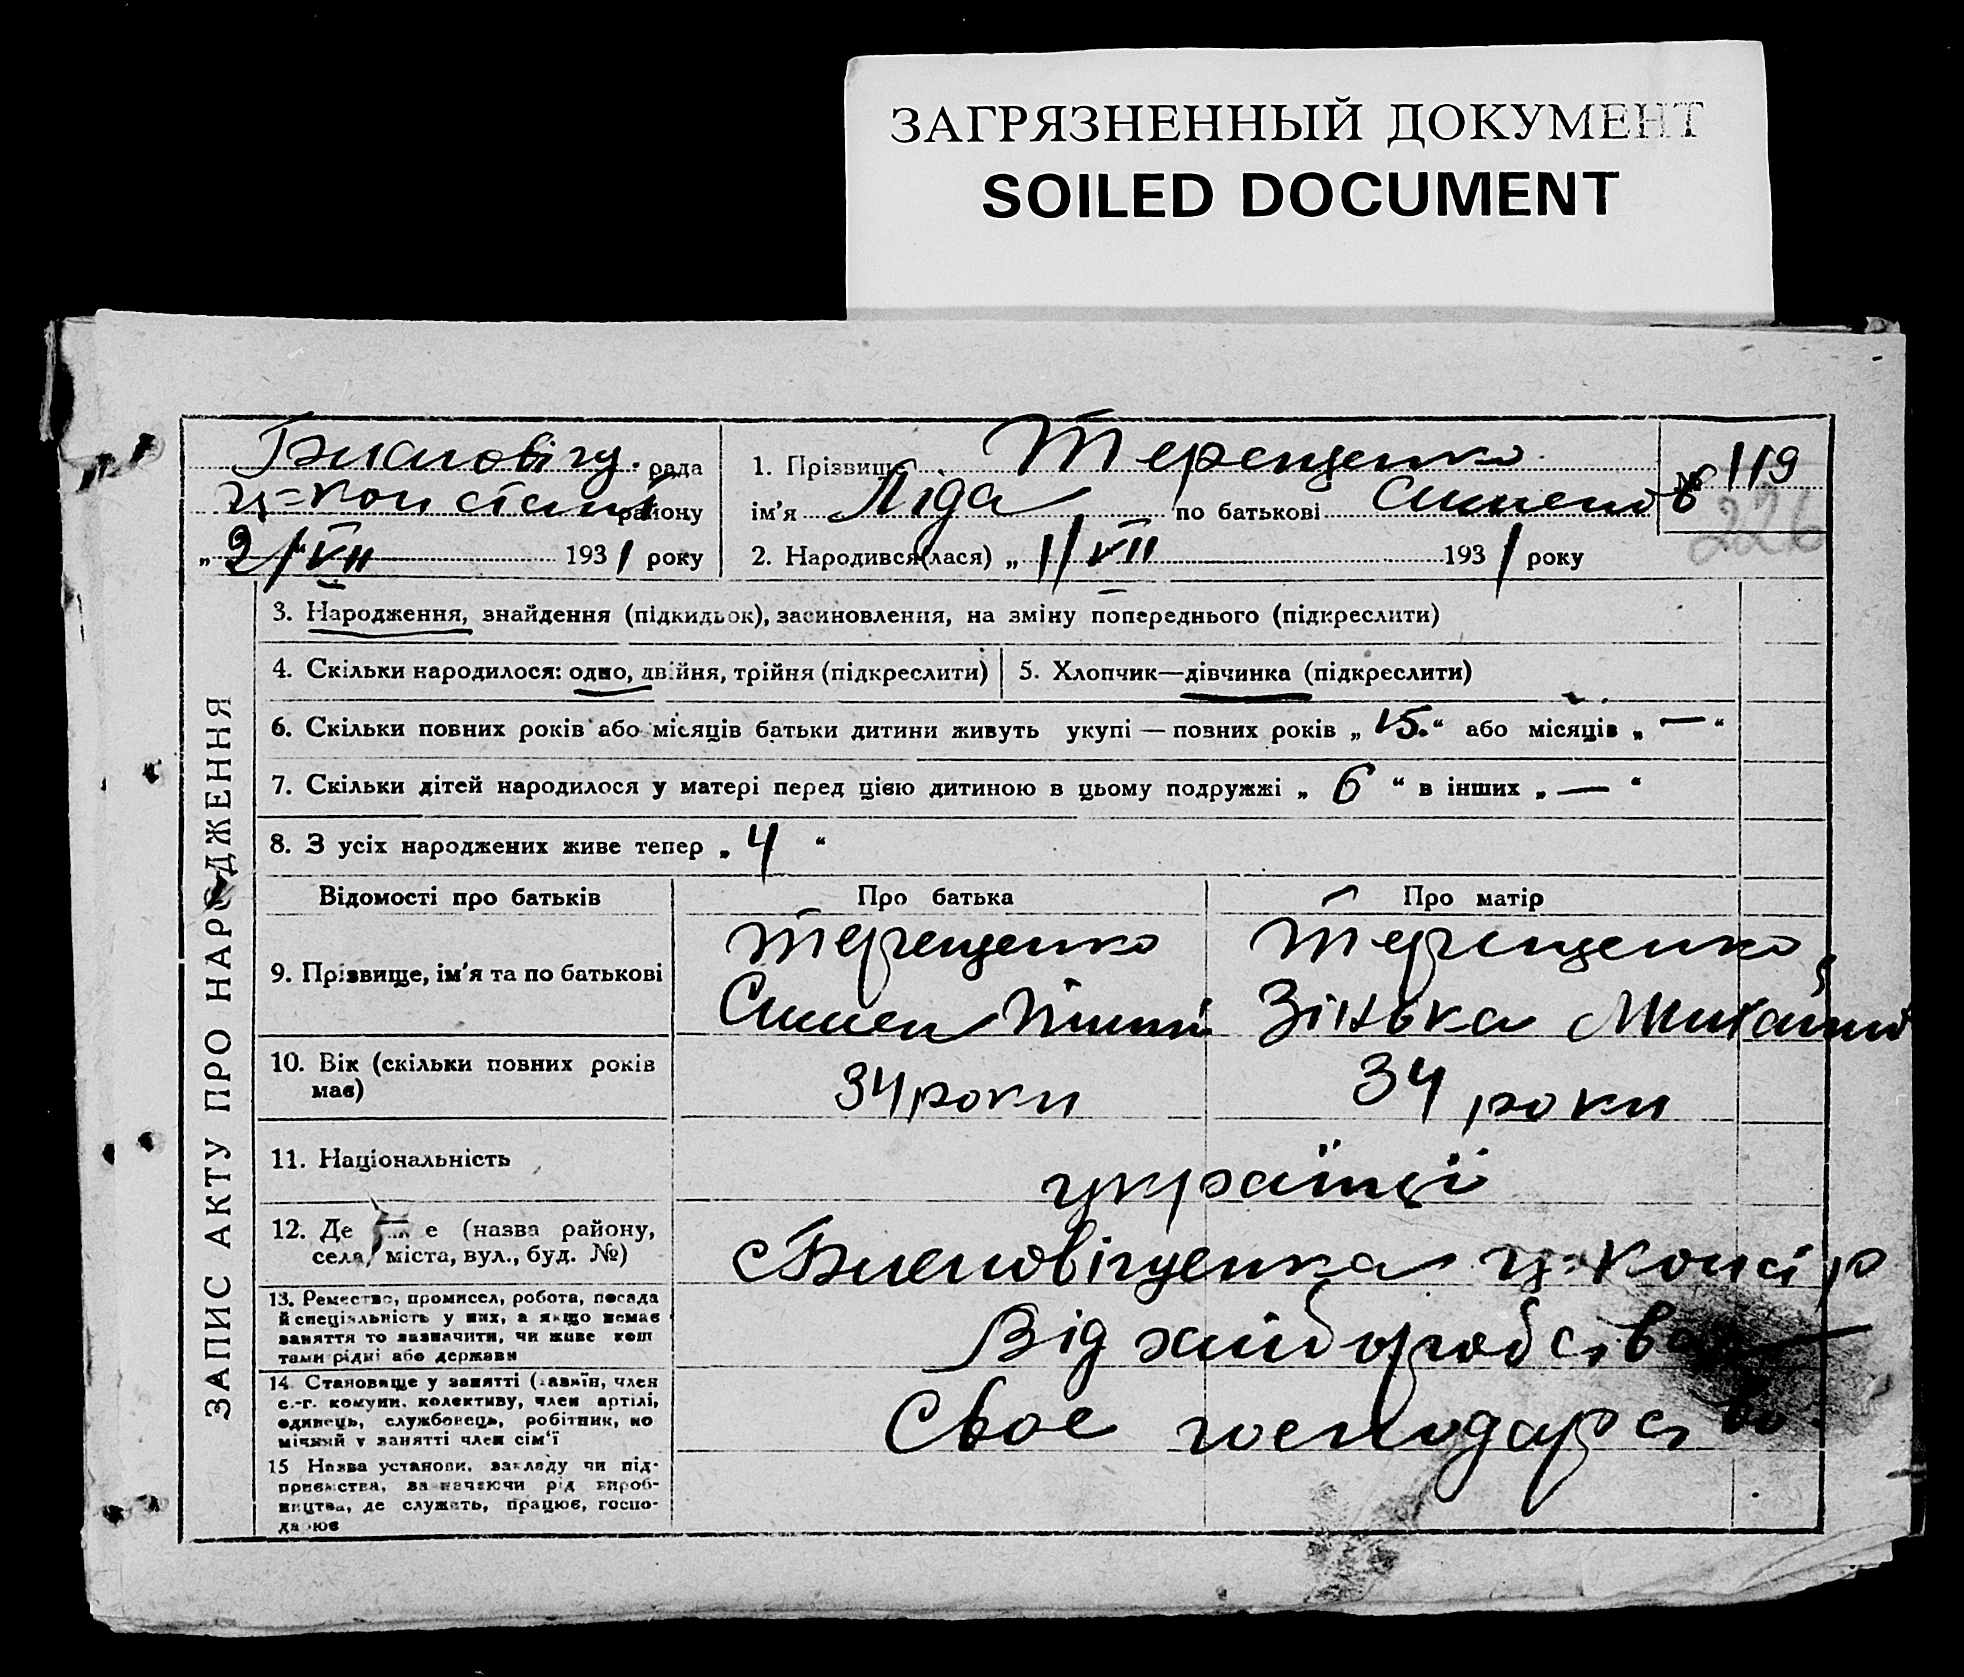 ЗАГРЯЗНЕННЫЙ ДОКУМЕНТ
SOILED DOCUMENT
рада
району
„ 2/VII 1931 року
1. Прізвище Терещенко
ім'я Ліда по батькові Семенов
2. Народився(лася) „ 1/VII 1931 року
№ 119
226
ЗАПИС АКТУ ПРО НАРОДЖЕННЯ
3. Народження, знайдення (підкидьок), засиновлення, на зміну попереднього (підкреслити)
4. Скільки народилося: одно, двійня, трійня (підкреслити)
5. Хлопчик—дівчинка (підкреслити)
6. Скільки повних років або місяців батьки дитини живуть укупі — повних років „ 15. “ або місяців „ — “
7. Скільки дітей народилося у матері перед цією дитиною в цьому подружжі „ 6 “ в інших „ — “
8. З усіх народжених живе тепер „ 4 “
Відомості про батьків
Про батька
Про матір
9. Прізвище, ім'я та по батькові
Терещенко
Семен
Терещенко
Зінька Михайлов
10. Вік (скільки повних років
має)
34 роки
34 роки
11. Національність
українці
12. Де е (назва району,
села, міста, вул., буд. №)
13. Ремество, промисел, робота, посада
й спеціяльність у них, а якщо немає
заняття то зазначити, чи живе кош
тами рідні або держави
Від хліборобства
14. Становище у занятті (хазяїн, член
с.-г. комуни, колективу, член артілі,
одинець, службовець, робітник, по
мічний у занятті член сім'ї
Своє господарство
15 Назва установи, закладу чи під-
приємства, зазначаючи рід вироб-
ництва, де служить, працює, госпо-
дарює